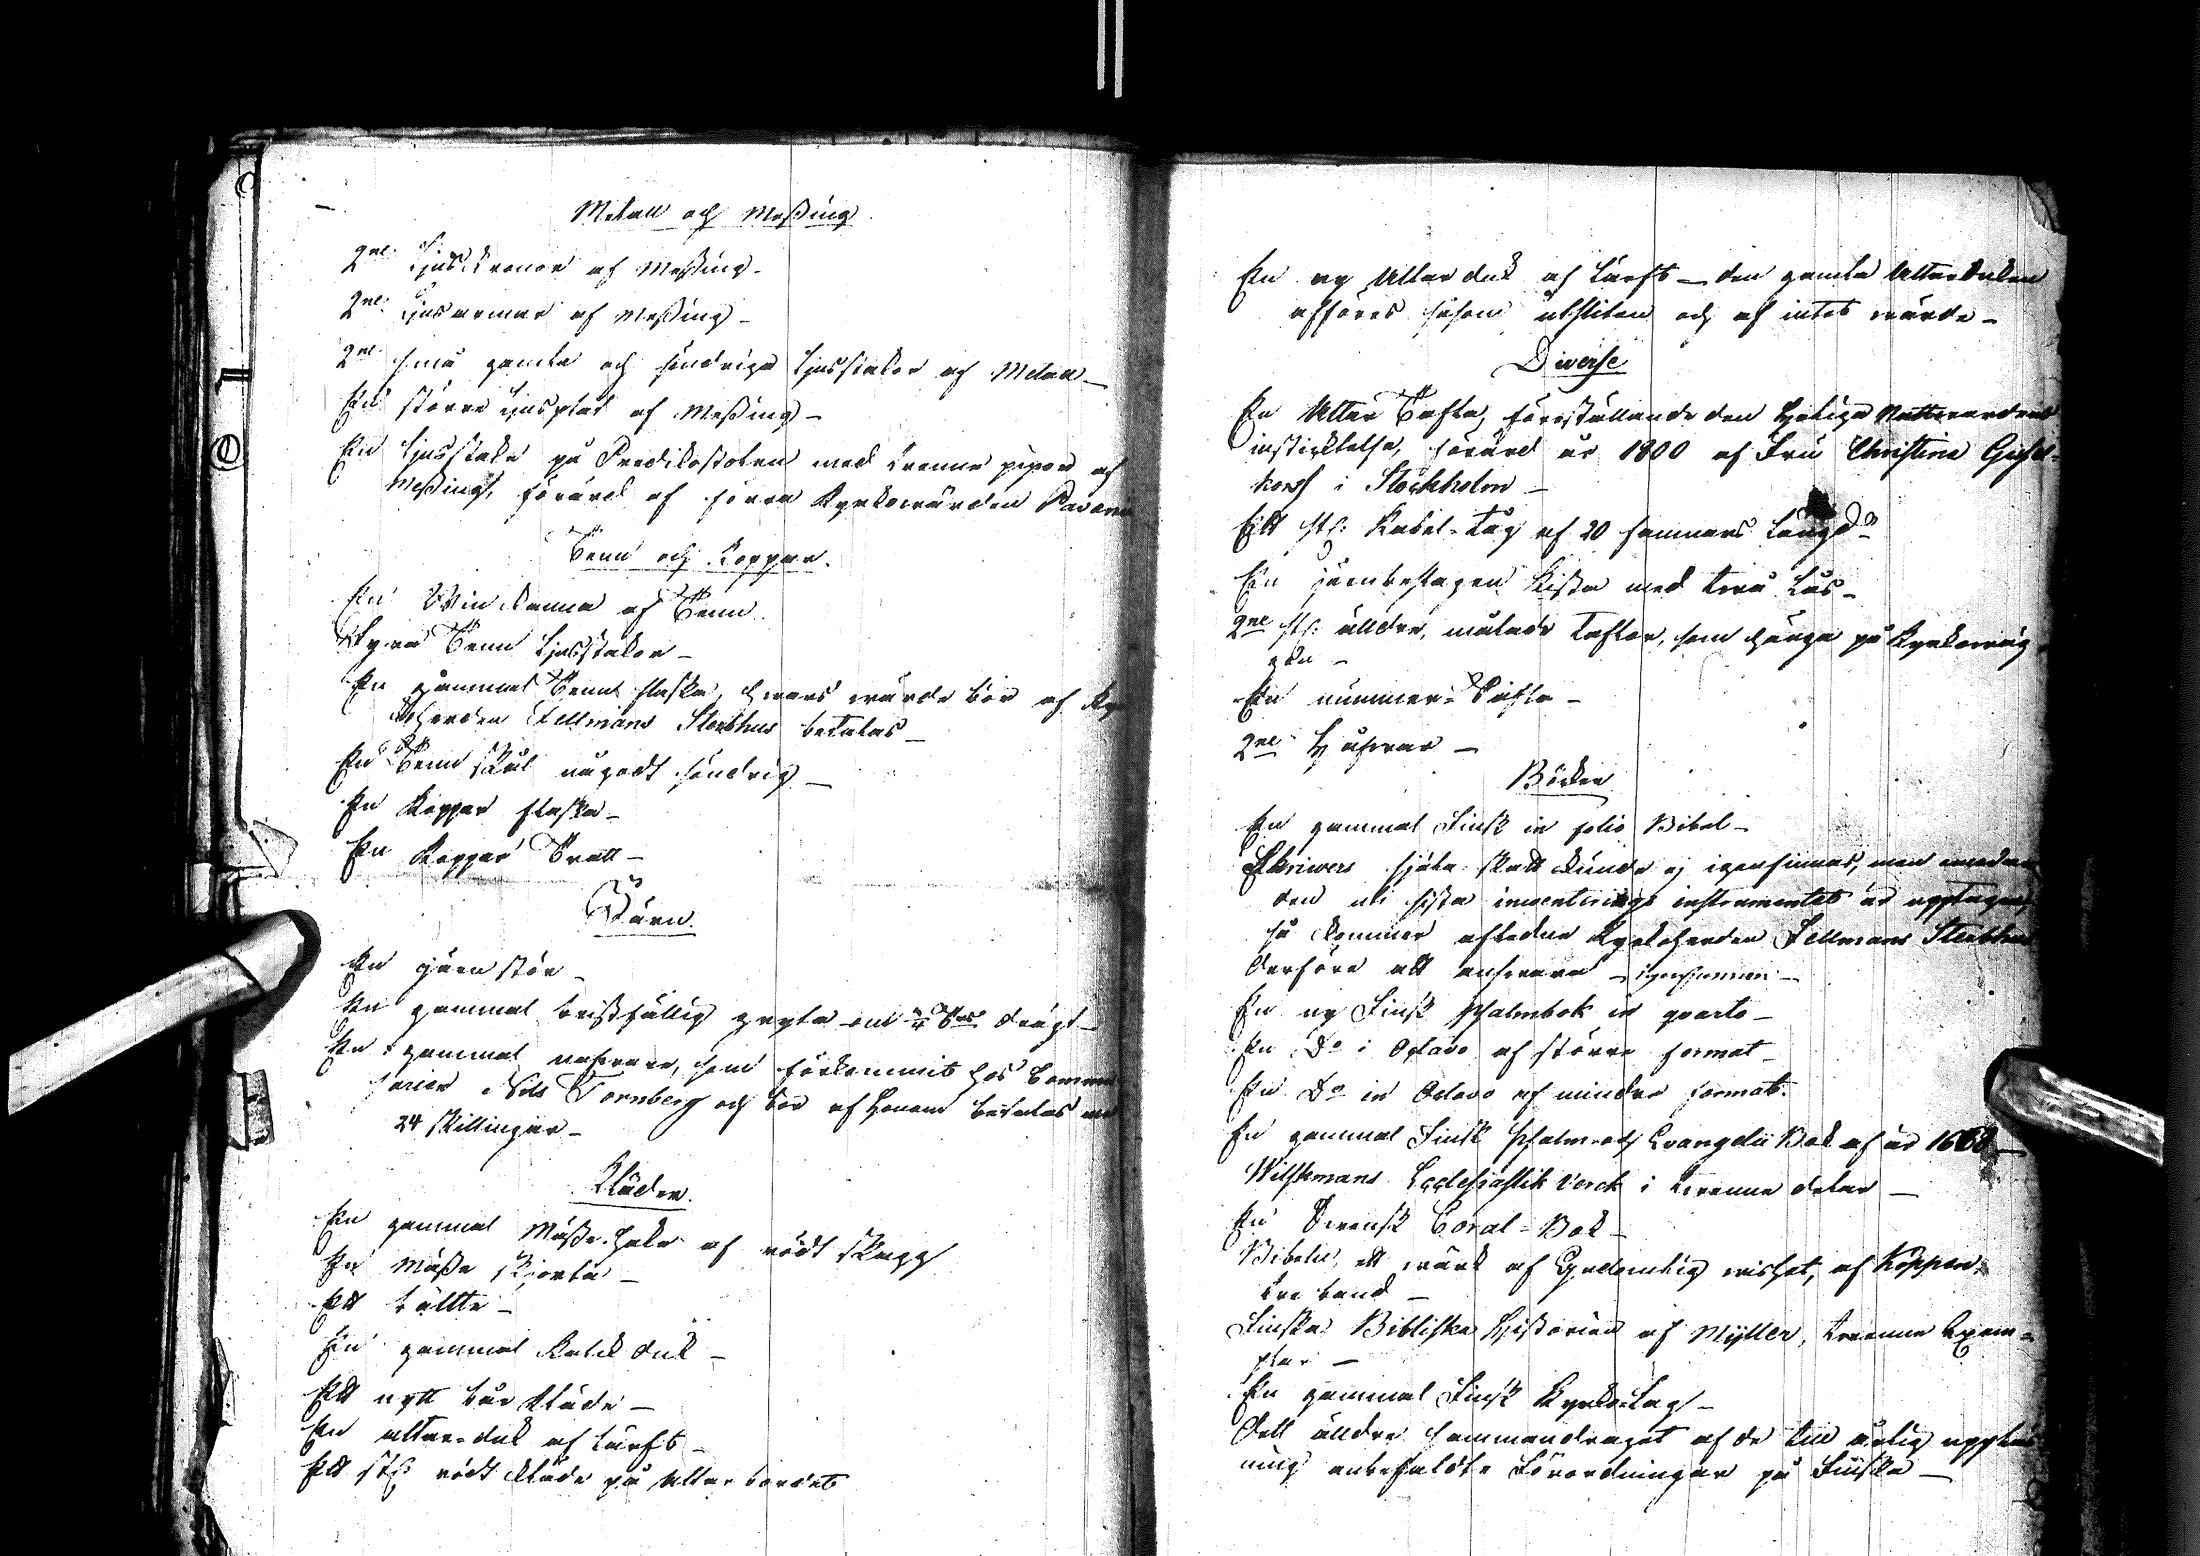 Metall och Messing
2ne Ljus Kronor af Messing -
2ne Ljusarmar af Messing -
2ne små gamla och söndriga Ljusstakar af Metall -
En större Ljusplåt af Messing -
En Ljusstake på Predikostolen med trenne pipor af
Messing, förärd af förra Kyrkowärden
Tenn och Koppar.
En Win Kanna af Tenn
Fyra Tenn Ljusstakar -
En gammal Tenn flaska, hwars wärde bör af Ky
Fellmans Sterbhus betalas -
En Tenn Skål något söndrig -
En Koppar flaska -
En Koppar Tratt -
Järn.
En järn stör -
En gammal bristfällig gryta drägt -
En gammal som förkommit hos Comm
sarien Nils Tornberg och bör af Honom betalas
24 Skillingar -
Kläder.
En gammal Mässe-Hake af rödt skagg
En Mässe Skjorta -
Ett bällte -
En gammal Kalk duk -
Ett nytt bår Kläde -
En altar-duk af lärft -
Ett st: rödt kläde på Altar bordet
En ny Altar duk af Lärft - den gamla Altarduken
afföres såsom utsliten och af intet wärde -
Diverse
En Altar Tafla, föreställande den Heliga Nattwardens
insticktelse, förärd år 1800 af Fru Christina
i Stockholm -
Ett st: Kabel-Tåg af 20 famnars Längd -
En järnbeslagen Kista med twå Lås -
2ne st: älldre, målade Taflor, som hänga på Kyrkowäg
gen -
En nummer-Tafla -
2ne Håfwar -
Böcker
En gammal Finsk in folio Bibel -
Skrivers Själa skatt kunde ej igenfinnas, men
den uti sista inventerings instrumentet är upptagen,
så kommer afledne Kyrkoherden Fellmans Sterbhus
derföre att answara - igenfunnen -
En ny Finsk Psalmbok in quarto -
En Do i Octavo af större format -
En Do in Octavo af mindre format.
En gammal Finsk Psalm och Evangelii Bok af år 1668 -
Wilskmans Ecclesiastik Verck i trenne delar -
En Swensk Coral-Bok -
Bibeln, ett wärk af Gudomlig wishet, af Köppen,
tre band -
Finska Bibliska Historien af Myller, trenne Exem-
plar -
En gammal Finsk Kyrko-Lag -
Dett älldre sammandraget af de till årlig upplä
ning anbefaldte Förordningar på Finska -